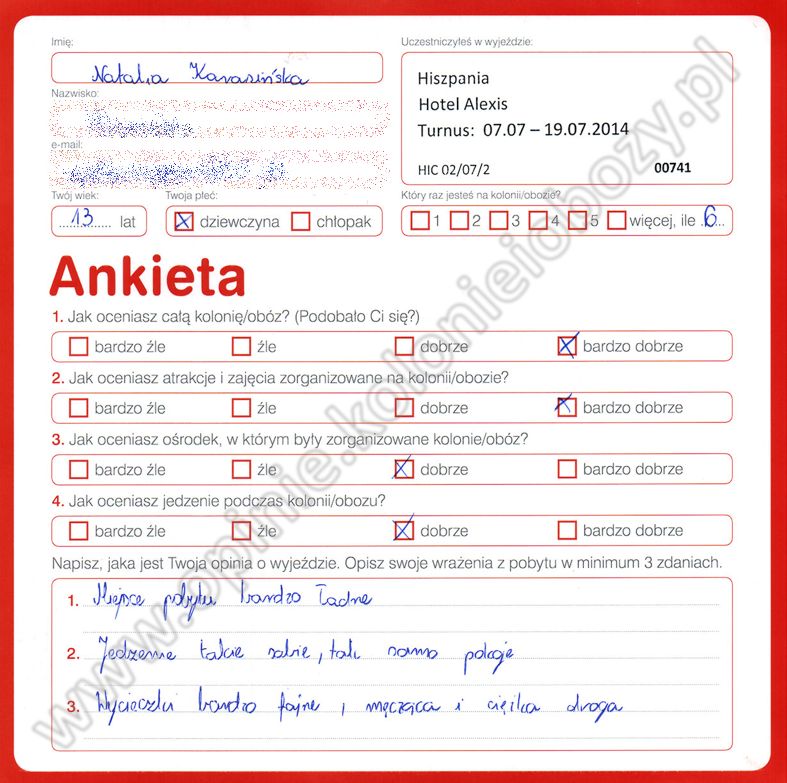 Imię:
Natalia Karasińska
Nazwisko:
e-mail:
Twój wiek:
13 lat
Twoja płeć:
dziewczyna chłopak
Uczestniczyłeś w wyjeździe:
Hiszpania
Hotel Alexis
Turnus: 07.07 – 19.07.2014
HIC 02/07/2 00741
Który raz jesteś na kolonii/obozie?
1 2 3 4 5 więcej, ile 6
Ankieta
1. Jak oceniasz całą kolonię/obóz? (Podobało Ci się?)
bardzo źle źle dobrze bardzo dobrze
2. Jak oceniasz atrakcje i zajęcia zorganizowane na kolonii/obozie?
bardzo źle źle dobrze bardzo dobrze
3. Jak oceniasz ośrodek, w którym były zorganizowane kolonie/obóz?
bardzo źle źle dobrze bardzo dobrze
4. Jak oceniasz jedzenie podczas kolonii/obozu?
bardzo źle źle dobrze bardzo dobrze
Napisz, jaka jest Twoja opinia o wyjeździe. Opisz swoje wrażenia z pobytu w minimum 3 zdaniach.
1. Miejsce pobytu bardzo ładne
2. Jedzenie takie sobie, tak samo pokoje
3. Wycieczki bardzo fajne, męcząca i ciężka droga
www.opinie.kolonieiobozy.pl